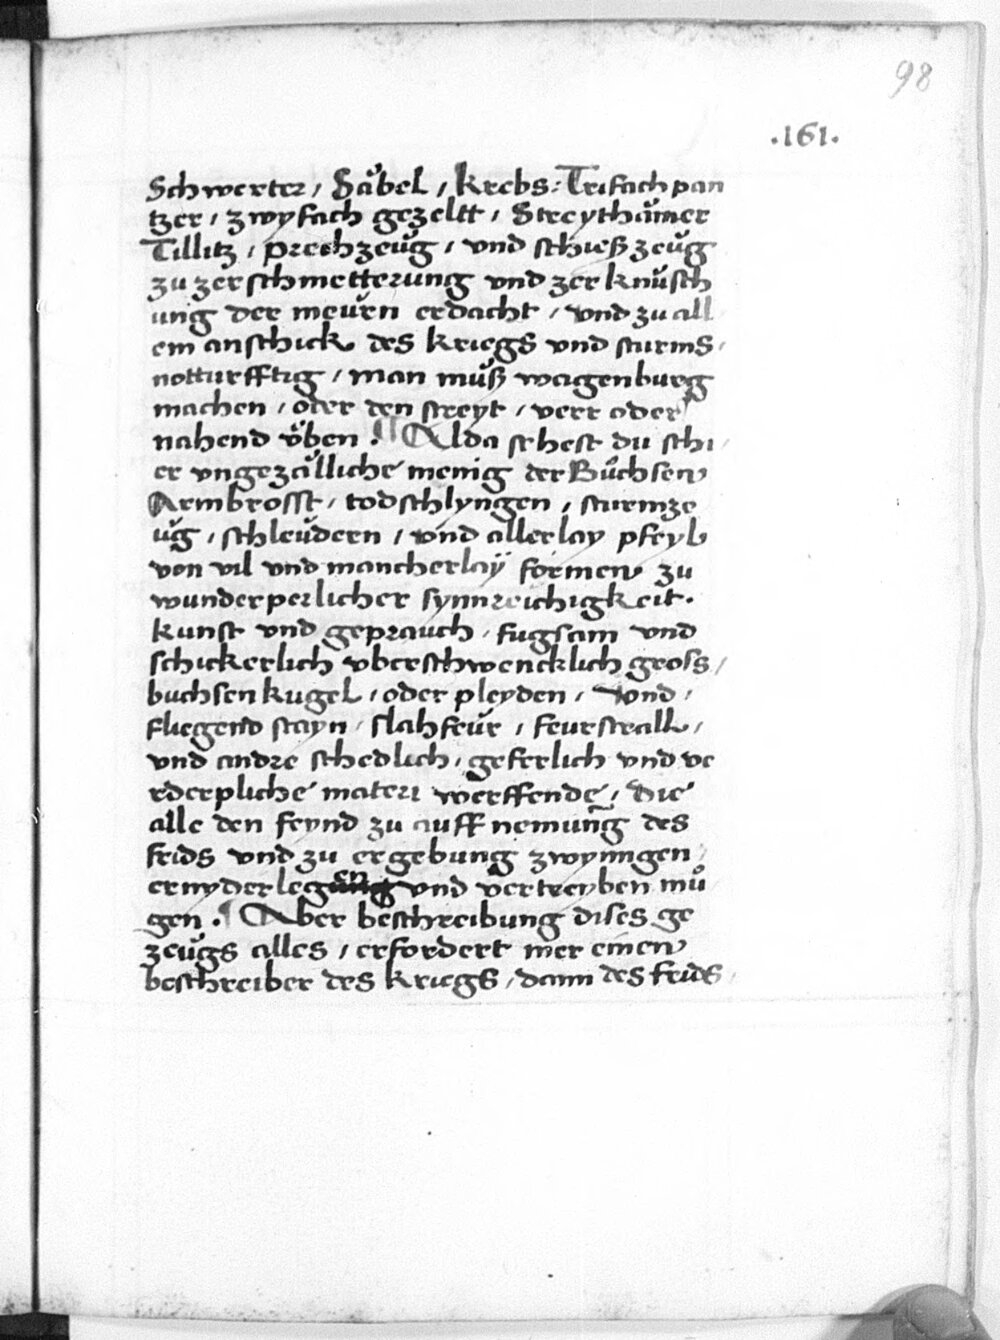 98
.161.
Schwerter / Såbel / Krebs : Trifach pan
tzer / zwyfach gezeltt / Streythåmer
Tillitz / prechzeug / vnd schieß zeug
zu zerschmetterung vnd zerknüsch
ung der meürn erdacht / vnd zu all
em anschick des kriegs vnd sturms /
notturfftig / man muß wagenburg
machen / oder den streyt / verr oder
nahend vͤben . ¶ Alda sehest du schi
er vngezålliche menig der Bůchsen
Armbrosst / todschlyngen / sturmze
ug / schleudern / vnd allerlay pfeyl
von vil vnd mancherlaÿ formen zu
wunderperlicher synnreichigkeit .
kunst vnd geprauch / fugsam vnd
schickerlich vberschwencklich gross /
buchsen kugel / oder pleyden / vnd /
fliegend stayn / slahfeur / feurstrall /
vnd andre schedlich / geferlich vnd ve
rderpliche materi werffende / die
alle den feynd zu auffnemung des
frids vnd zu ergebung zwyngen /
ernyderlegen vnd vertreyben mů
gen . ¶ Aber beschreibung dises ge
zeugs alles / erfordert mer einen
beschreiber des kriegs / dann des frids /